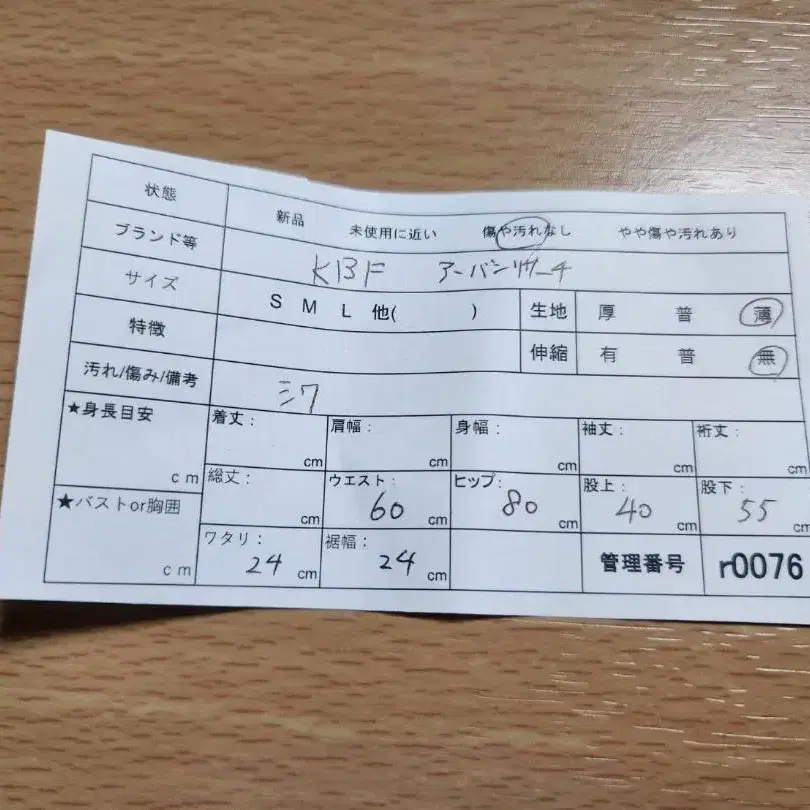 状態 新品 未使用に近い 傷や汚れなし やや傷や汚れあり
ブランド等 KBF アーバンリサーチ
サイズ S M L 他( ) 生地 厚 普 薄
特徴 伸縮 有 普 無
汚れ/傷み/備考 シワ
★身長目安 cm 着丈: cm 肩幅: cm 身幅: cm 袖丈: cm 裄丈: cm
★バストor胸囲 cm 総丈: cm ウエスト: 60 cm ヒップ: 80 cm 股上: 40 cm 股下: 55 cm
ワタリ: 24 cm 裾幅: 24 cm 管理番号 r0076